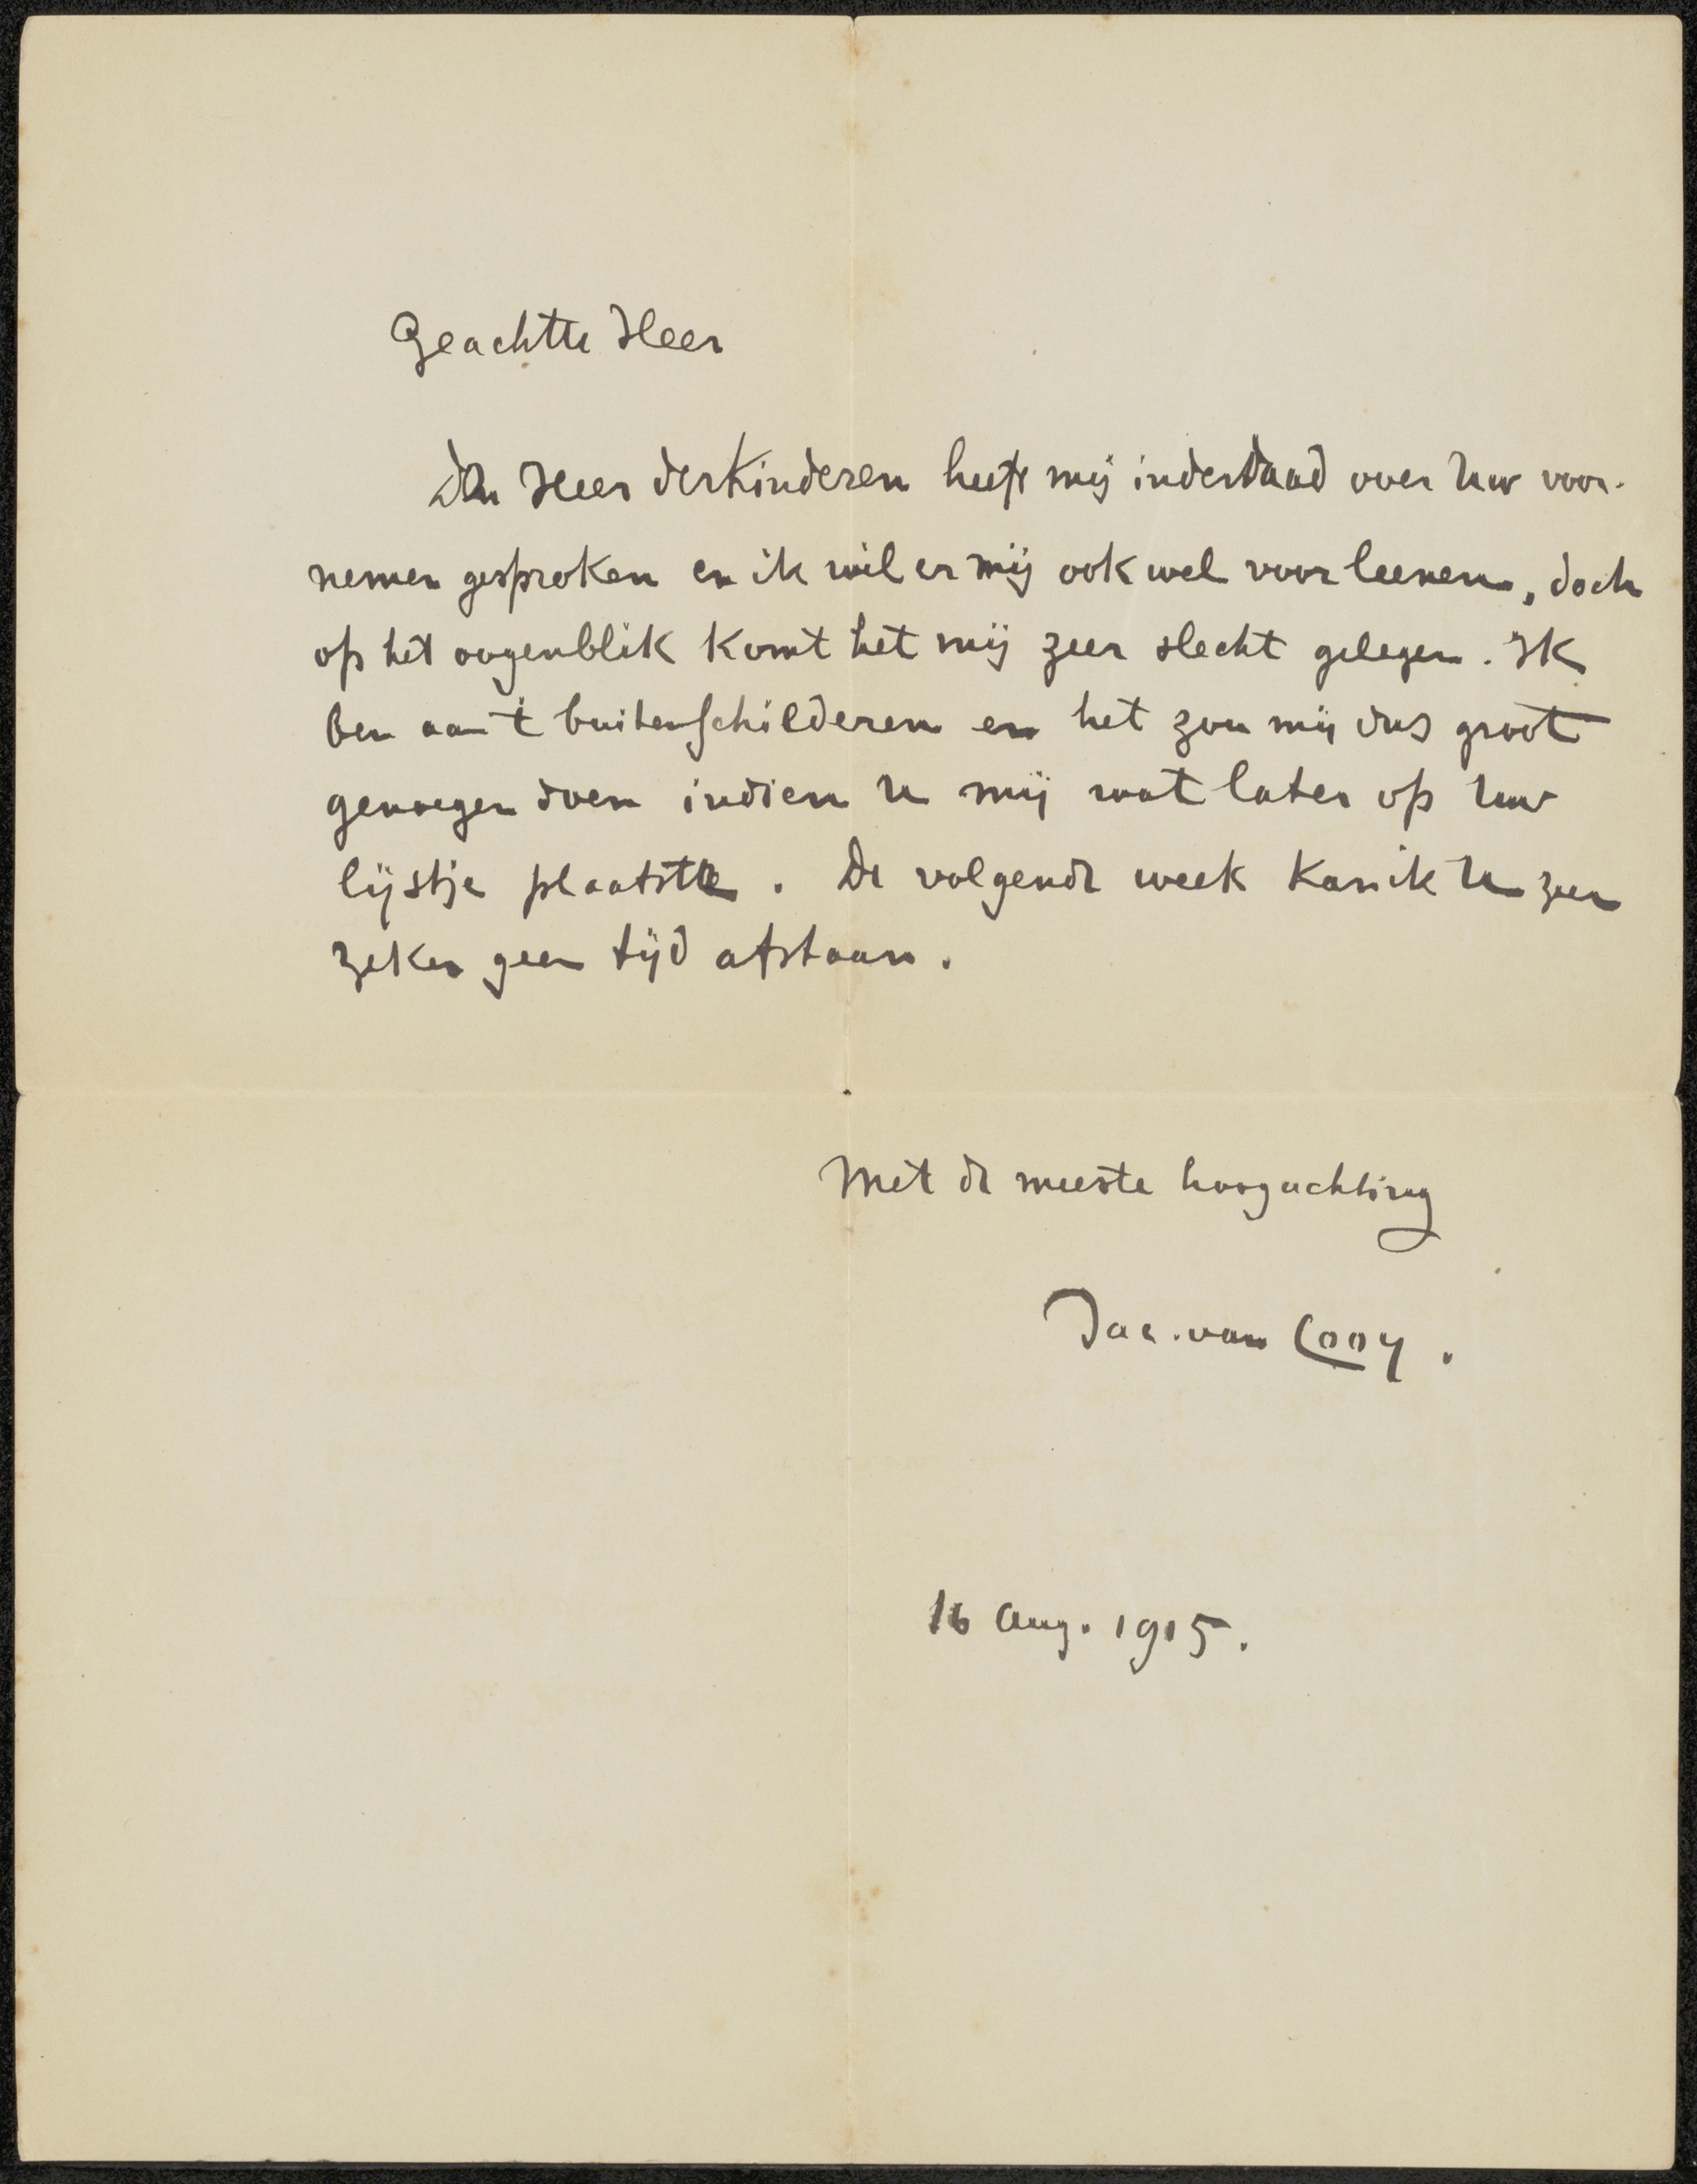 Geachte Heer
Den Heer derKinderen heeft mij inderdaad over Uw voor-
nemen gesproken en ik wil er mij ook wel voor leenen, doch
op het oogenblik komt het mij zeer slecht gelegen. Ik
ben aan 't buitenschilderen en het zou mij dus groot
genoegen doen indien U mij wat later op Uw
lijstje plaatste. De volgende week kan ik U zeer
zeker geen tijd afstaan.
Met de meeste hoogachting
Jac. van Looy.
16 Aug. 1915.